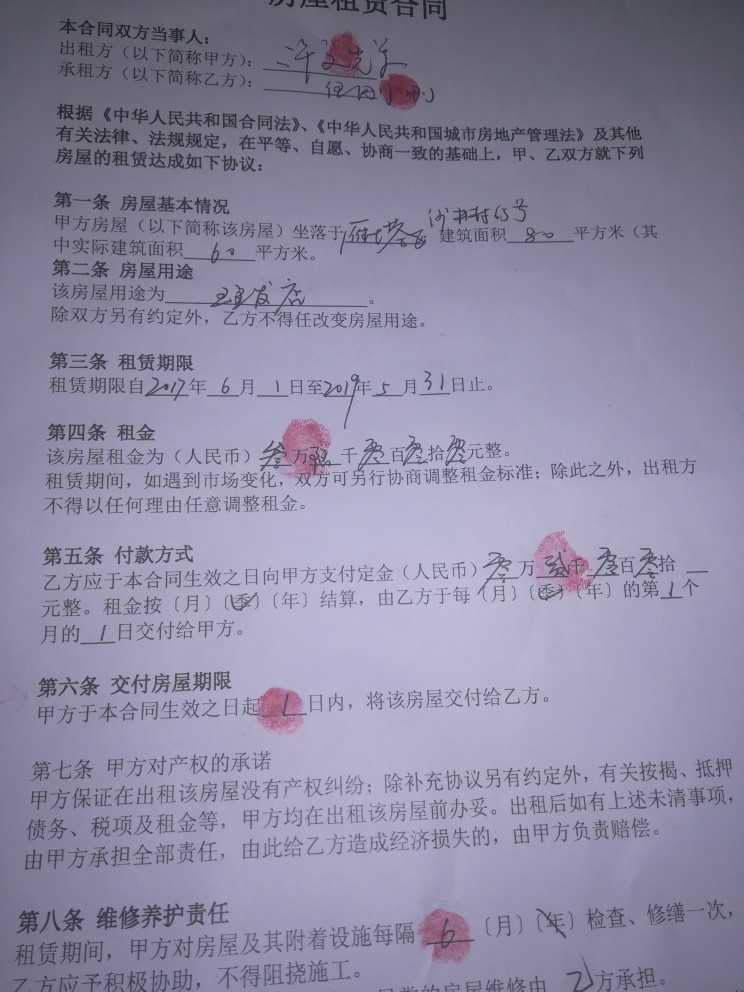 房屋租赁合同
本合同双方当事人：
出租方（以下简称甲方）：
承租方（以下简称乙方）：
根据《中华人民共和国合同法》、《中华人民共和国城市房地产管理法》及其他
有关法律、法规规定，在平等、自愿、协商一致的基础上，甲、乙双方就下列
房屋的租赁达成如下协议：
第一条 房屋基本情况
甲方房屋（以下简称该房屋）坐落于 村65号 建筑面积 80 平方米（其
中实际建筑面积 60 平方米。
第二条 房屋用途
该房屋用途为 理发店 。
除双方另有约定外，乙方不得任改变房屋用途。
第三条 租赁期限
租赁期限自2017年 6 月 1 日至2019年 5 月 31 日止。
第四条 租金
该房屋租金为（人民币） 叁 万 千 零 百 零 拾 零 元整。
租赁期间，如遇到市场变化，双方可另行协商调整租金标准；除此之外，出租方
不得以任何理由任意调整租金。
第五条 付款方式
乙方应于本合同生效之日向甲方支付定金（人民币） 零 万 贰 千 零 百 零 拾
元整。租金按〔月〕〔季〕〔年〕结算，由乙方于每〔月〕〔季〕〔年〕的第 1 个
月的 1 日交付给甲方。
第六条 交付房屋期限
甲方于本合同生效之日起 1 日内，将该房屋交付给乙方。
第七条 甲方对产权的承诺
甲方保证在出租该房屋没有产权纠纷；除补充协议另有约定外，有关按揭、抵押
债务、税项及租金等，甲方均在出租该房屋前办妥。出租后如有上述未清事项，
由甲方承担全部责任，由此给乙方造成经济损失的，由甲方负责赔偿。
第八条 维修养护责任
租赁期间，甲方对房屋及其附着设施每隔 6 〔月〕〔年〕检查、修缮一次，
乙方应予积极协助，不得阻挠施工。
日常的房屋维修由 乙 方承担。